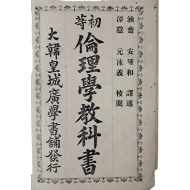 涵齋 安鍾和 譯述
漳隱 元泳義 校閱
初等
倫理學敎科書
大韓皇城廣學書舖發行